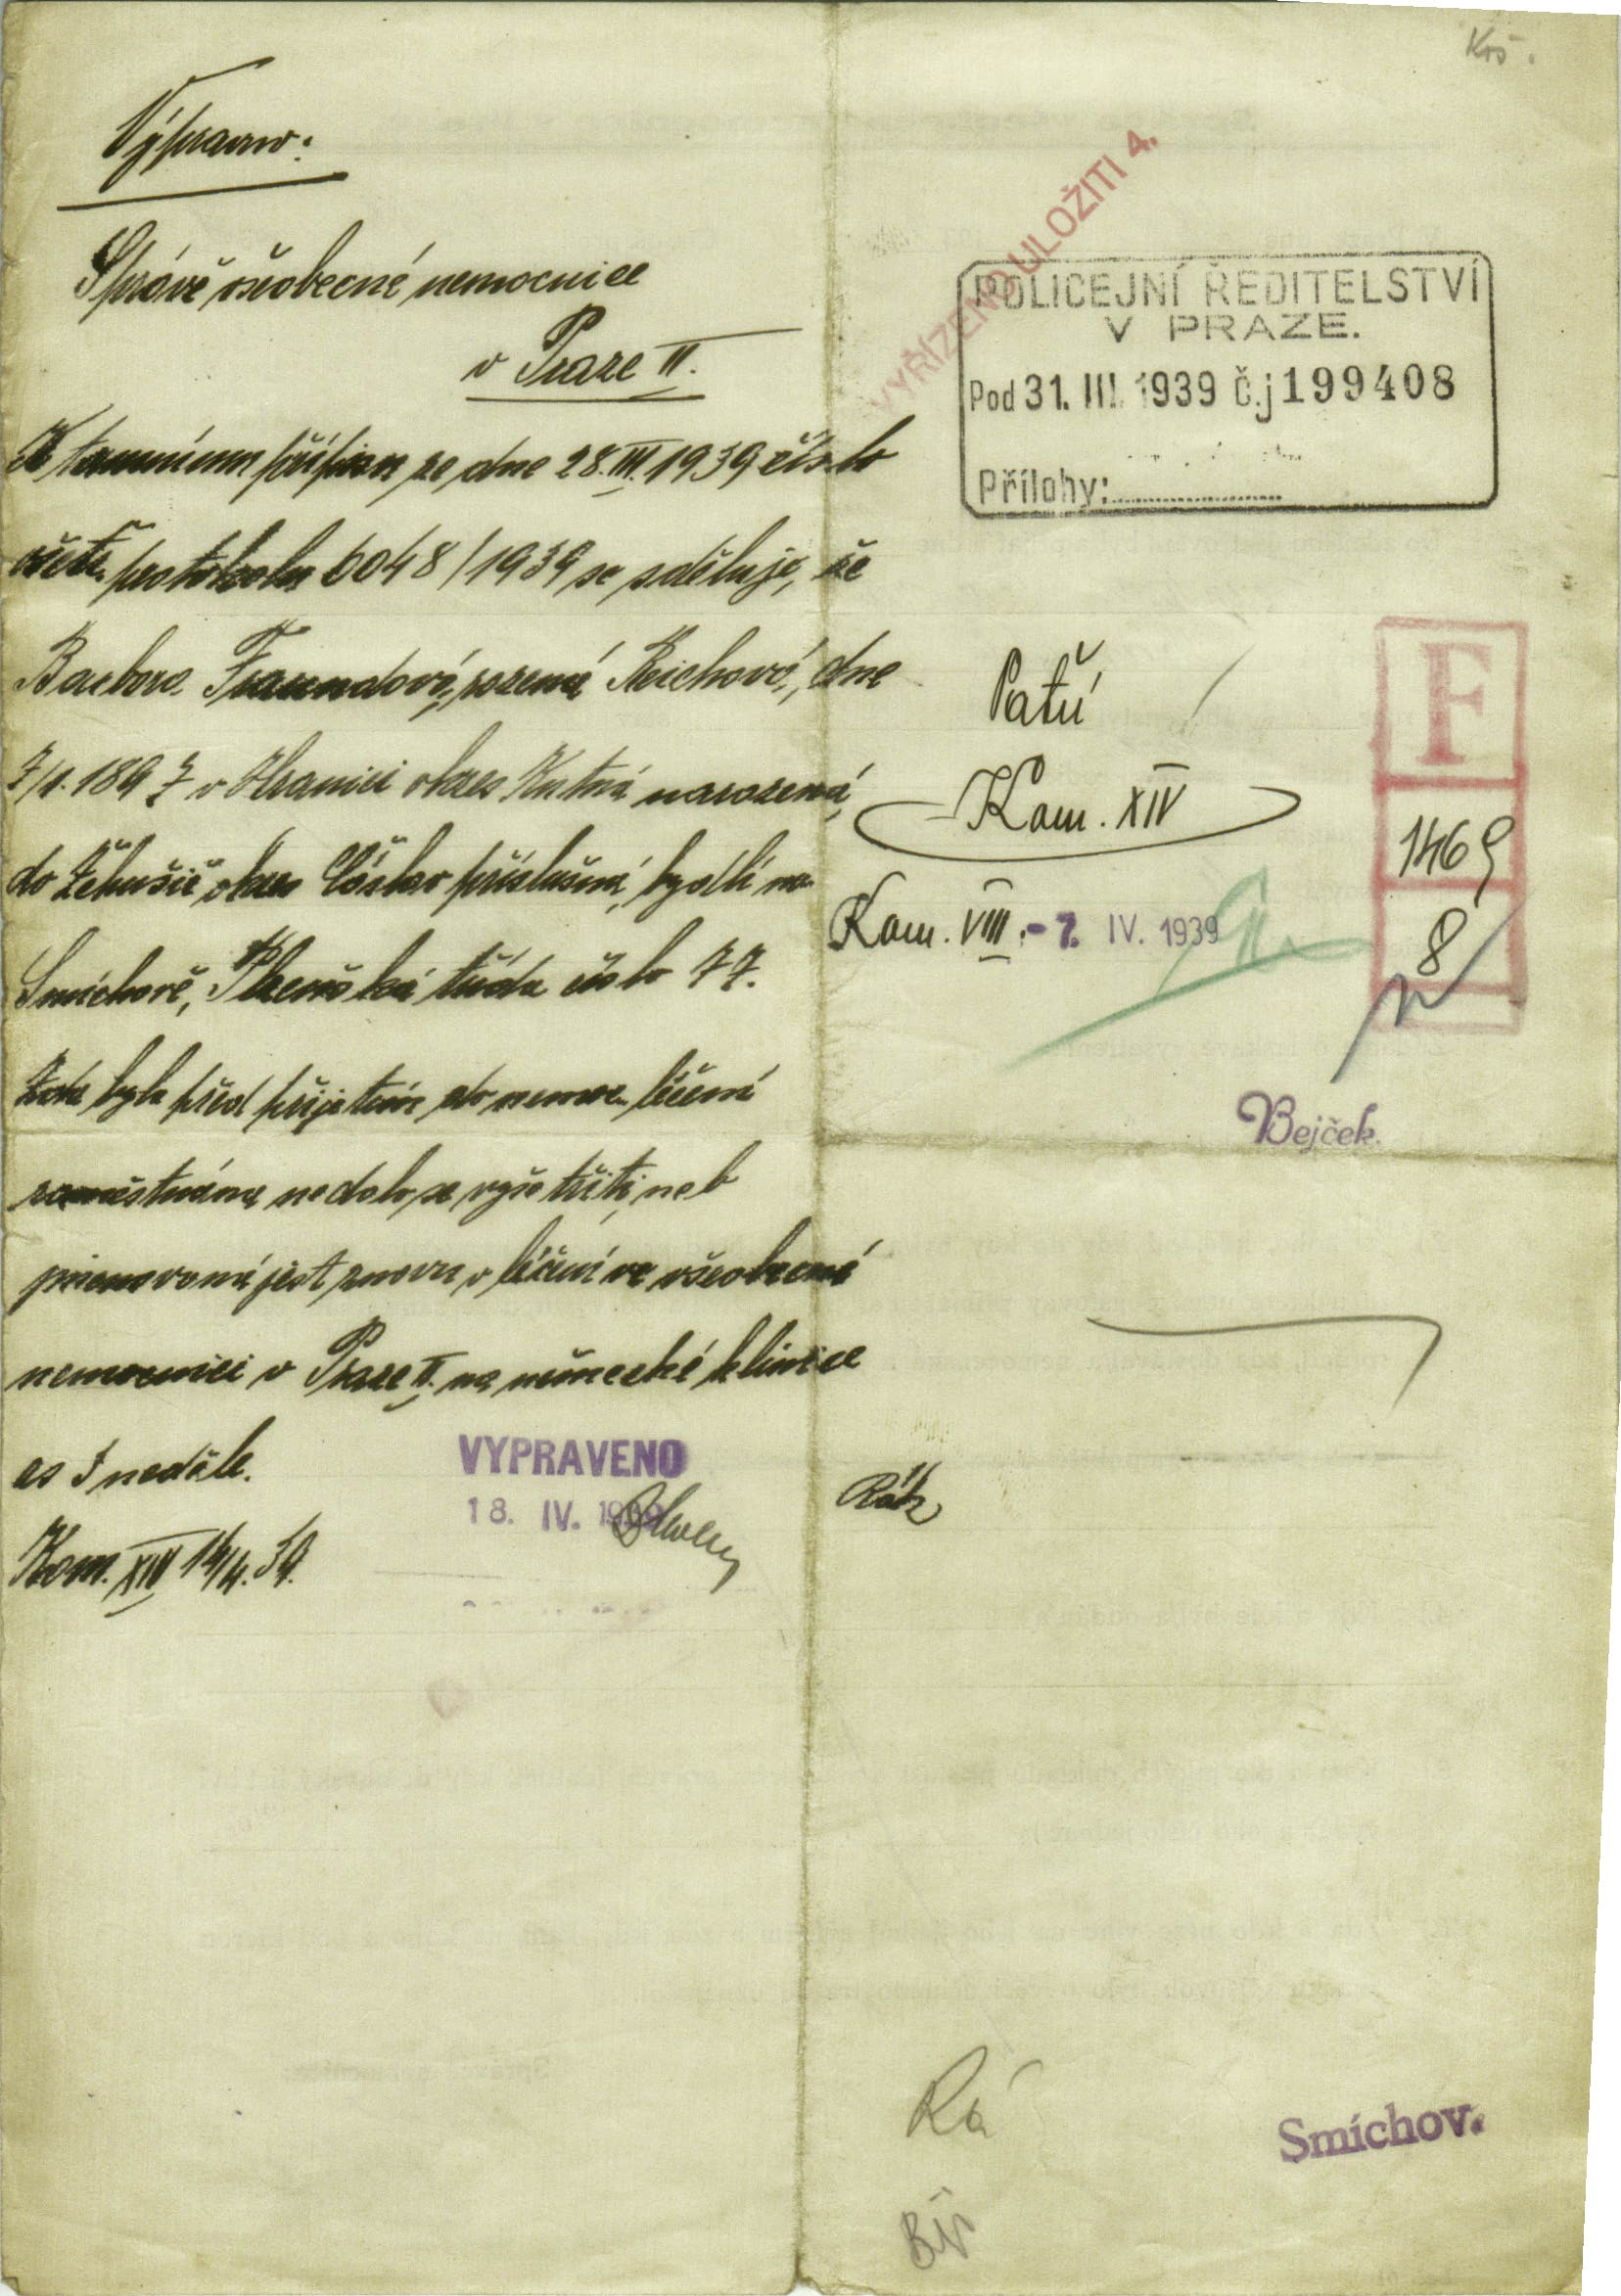 Krš.
Výprava:
Správě všeobecné nemocnice
v Praze II.
K tamnímu přípisu ze dne 28.III.1939 číslo
účet. protokolu 6048/1939 se sděluje, že
Barbora Fraundová, rozená Reichová, dne
7/1.1897 v Hranici okres Kutná narozená,
do Žehušic okres Čáslav příslušná, bydlí na
Smíchově, Plzeňská třída číslo 77.
Zda byla před přijetím do nemoc. léčení
zaměstnána nedalo se vyšetřiti, neb
jmenovaná jest znovu v léčení ve všeobecné
nemocnici v Praze II. na německé klinice
as 3 neděle.
Kom. XIV 14/4.39.
VYPRAVENO
18. IV. 1939
VYŘÍZENO ULOŽITI 4.
POLICEJNÍ ŘEDITELSTVÍ
V PRAZE.
Pod 31. III. 1939 Č.j 199408
Přílohy:
Patří
Kom. XIV
Kom. VIII. - 7. IV. 1939
F
1469
8
Bejček.
Rá
Smíchov.